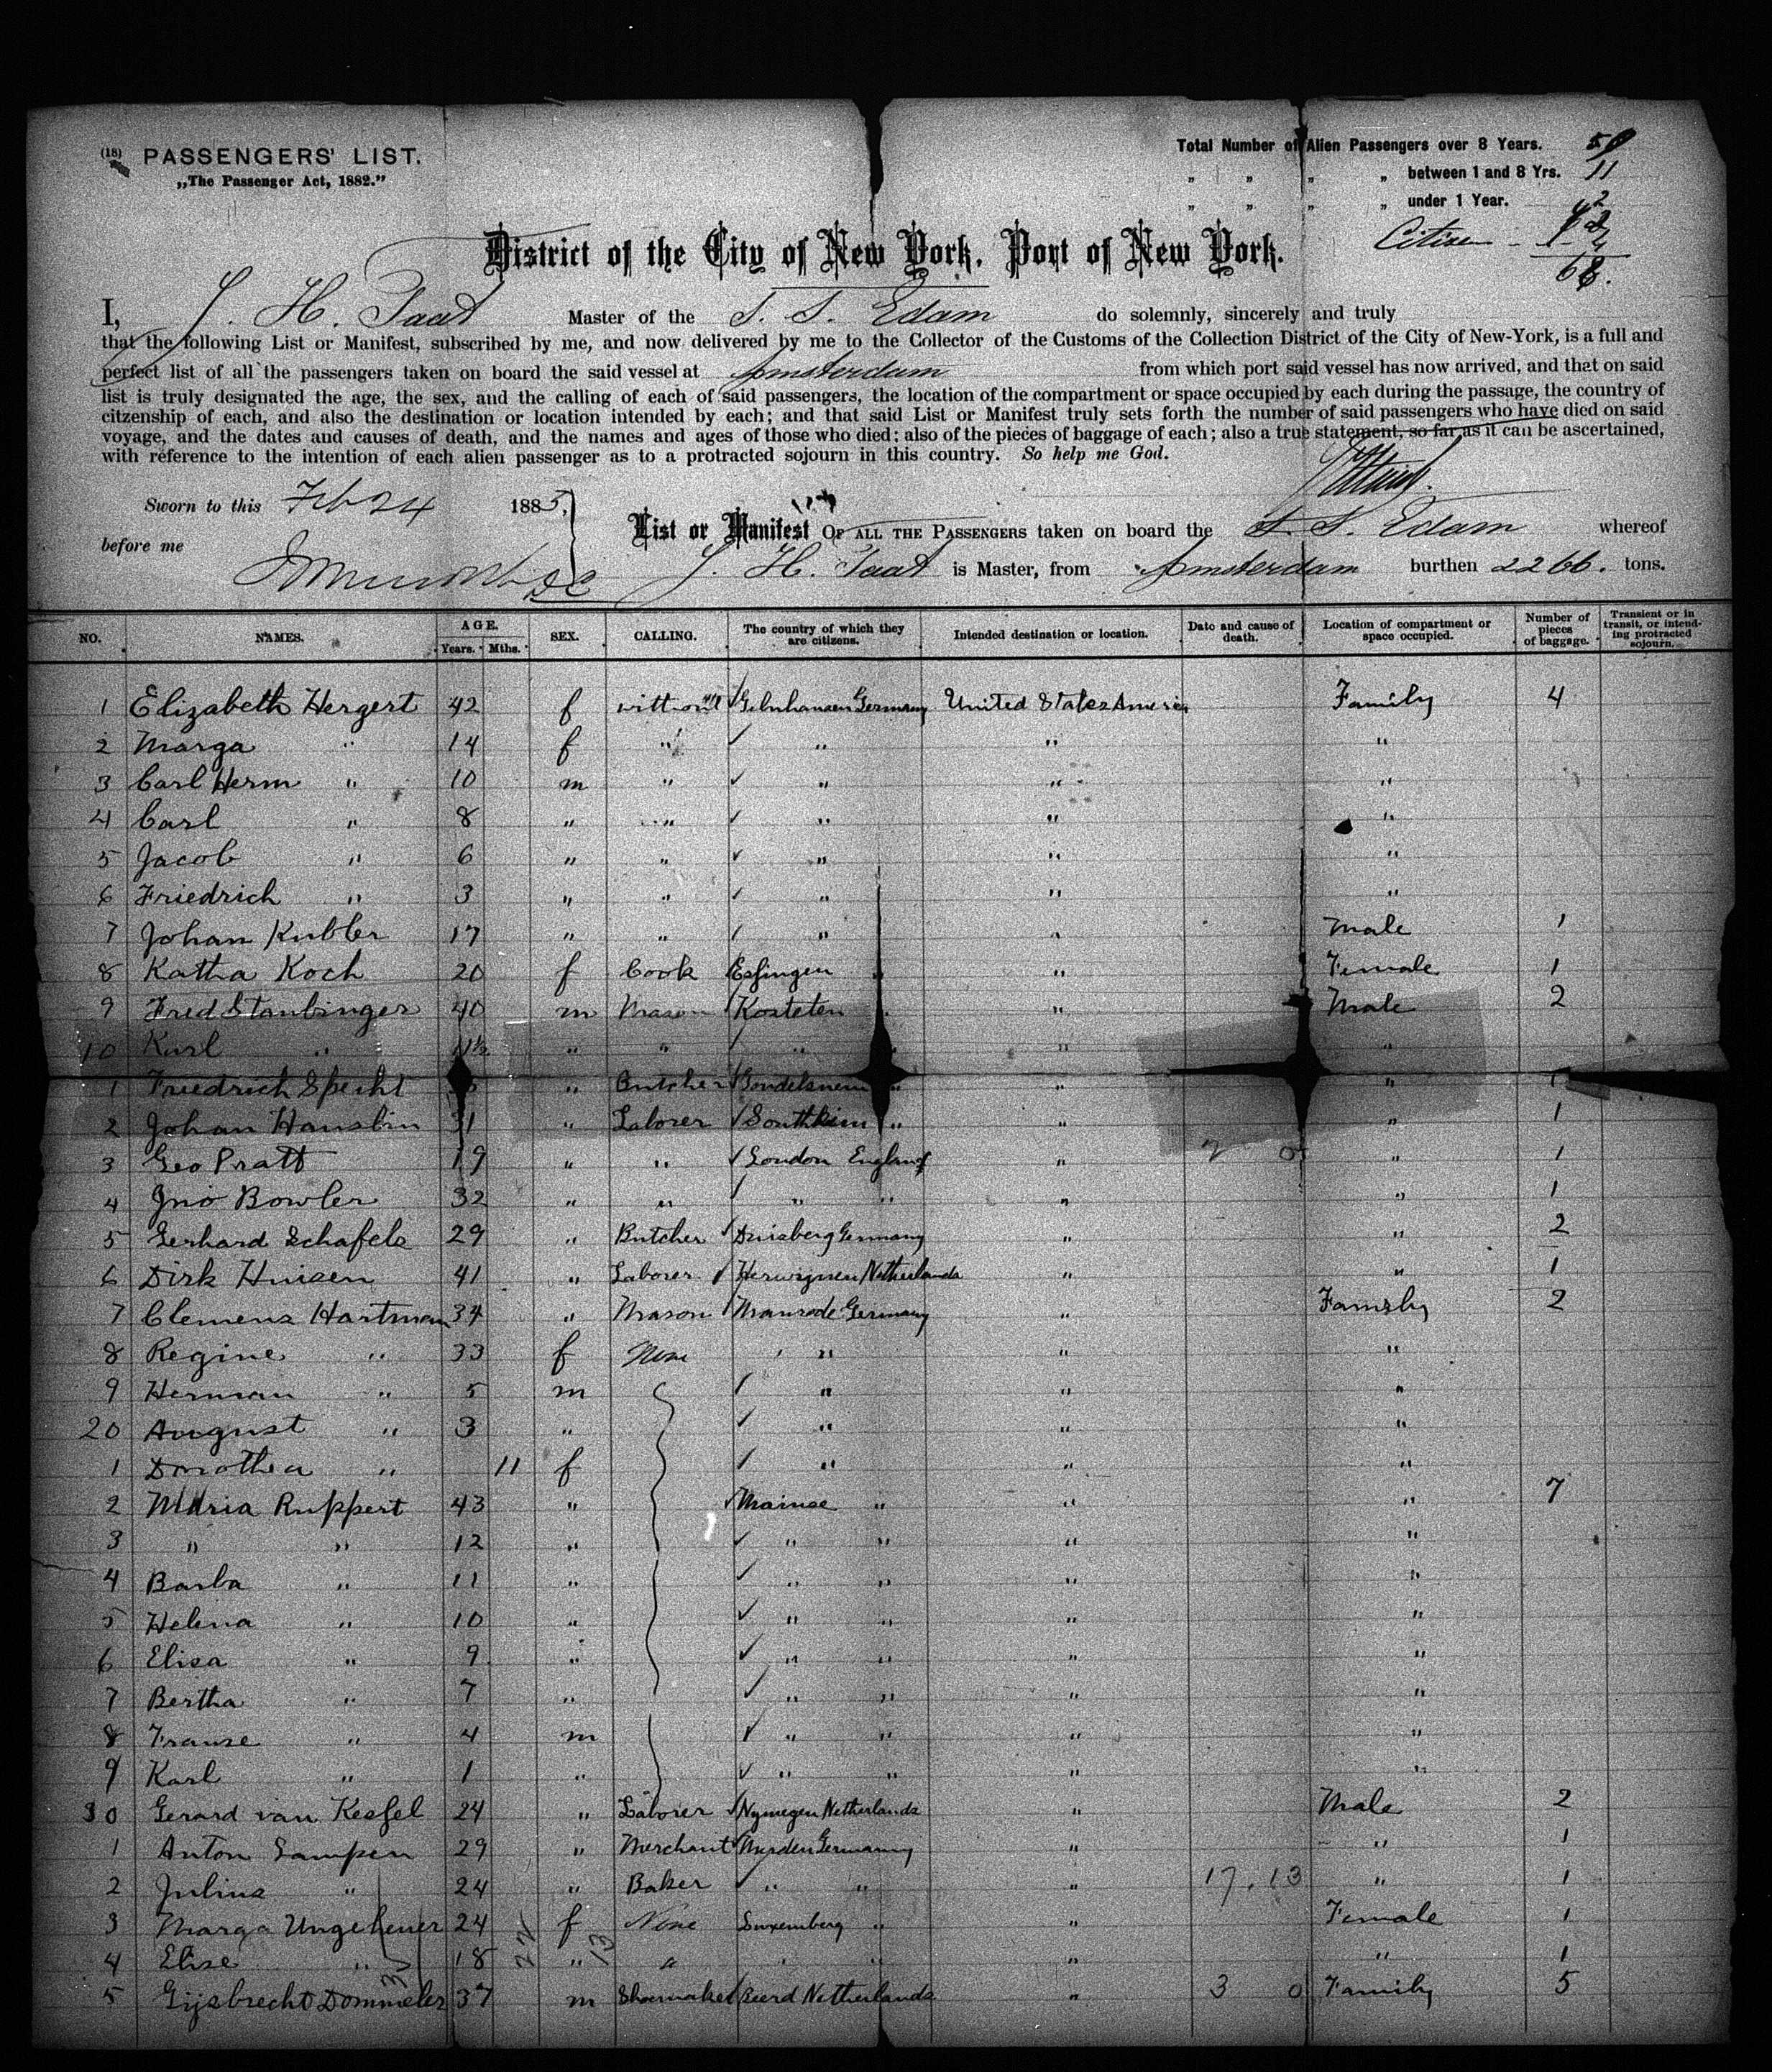 (18) PASSENGERS' LIST.
„The Passenger Act, 1882."
Total Number of Alien Passengers over 8 Years. 50
„ „ „ „ between 1 and 8 Yrs. 11
„ „ „ „ under 1 Year. 2
Citizen
68.
District of the City of New York, Port of New York.
I, J. H. Taat Master of the S. S. Edam do solemnly, sincerely and truly
that the following List or Manifest, subscribed by me, and now delivered by me to the Collector of the Customs of the Collection District of the City of New-York, is a full and
perfect list of all the passengers taken on board the said vessel at Amsterdam from which port said vessel has now arrived, and that on said
list is truly designated the age, the sex, and the calling of each of said passengers, the location of the compartment or space occupied by each during the passage, the country of
citzenship of each, and also the destination or location intended by each; and that said List or Manifest truly sets forth the number of said passengers who have died on said
voyage, and the dates and causes of death, and the names and ages of those who died; also of the pieces of baggage of each; also a true statement, so far as it can be ascertained,
with reference to the intention of each alien passenger as to a protracted sojourn in this country. So help me God.
Sworn to this Feb 24 1885,
before me
List or Manifest OF ALL THE PASSENGERS taken on board the S. S. Edam whereof
J. H. Taat is Master, from Amsterdam burthen 2266. tons.
NO. NAMES. AGE. Years. Mths. SEX. CALLING. The country of which they are citizens. Intended destination or location. Date and cause of death. Location of compartment or space occupied. Number of pieces of baggage. Transient or in transit, or intending protracted sojourn.
1 Elizabeth Hergert 42 f without Gelnhausen Germany United States America Family 4
2 Marga " 14 f " " " "
3 Carl Herm " 10 m " " " "
4 Carl " 8 " " " " "
5 Jacob " 6 " " " " "
6 Friedrich " 3 " " " " "
7 Johan Kubler 17 " " " " Male 1
8 Katha Koch 20 f Cook Essingen " " Female 1
9 Fred Stanbinger 40 m Mason Kosteten " " Male 2
10 Karl " 11½ " " " " " "
1 Friedrich Specht " Butcher " " " 1
2 Johan Hanslin 31 " Laborer Southkim " " " 1
3 Geo Pratt 19 " " London England " " 1
4 Jno Bowler 32 " " " " " " 1
5 Gerhard Schafels 29 " Butcher Duisberg Germany " " 2
6 Dirk Huisen 41 " Laborer Herwijnen Netherlands " " 1
7 Clemens Hartman 34 " Mason Manrode Germany " Family 2
8 Regine " 33 f None " " "
9 Herman " 5 m " " "
20 August " 3 " " " "
1 Dorothea " 11 f " " "
2 Maria Ruppert 43 " Mainse " " " 7
3 " " 12 " " " " "
4 Barba " 11 " " " " "
5 Helena " 10 " " " " "
6 Elisa " 9 " " " " "
7 Bertha " 7 " " " " "
8 Franse " 4 m " " " "
9 Karl " 1 " " " " "
30 Gerard van Kessel 24 " Laborer Nymegen Netherlands " Male 2
1 Anton Lampen 29 " Merchant Germany " " 1
2 Julius " 24 " Baker " " " 17. 13 " 1
3 Marga Ungeheuer 24 f None Luxemberg " " Female 1
4 Elise " 18 " " " " " " 1
5 Gijsbrecht Dommeler 37 m Shoemaker Netherlands " 3 0 Family 5